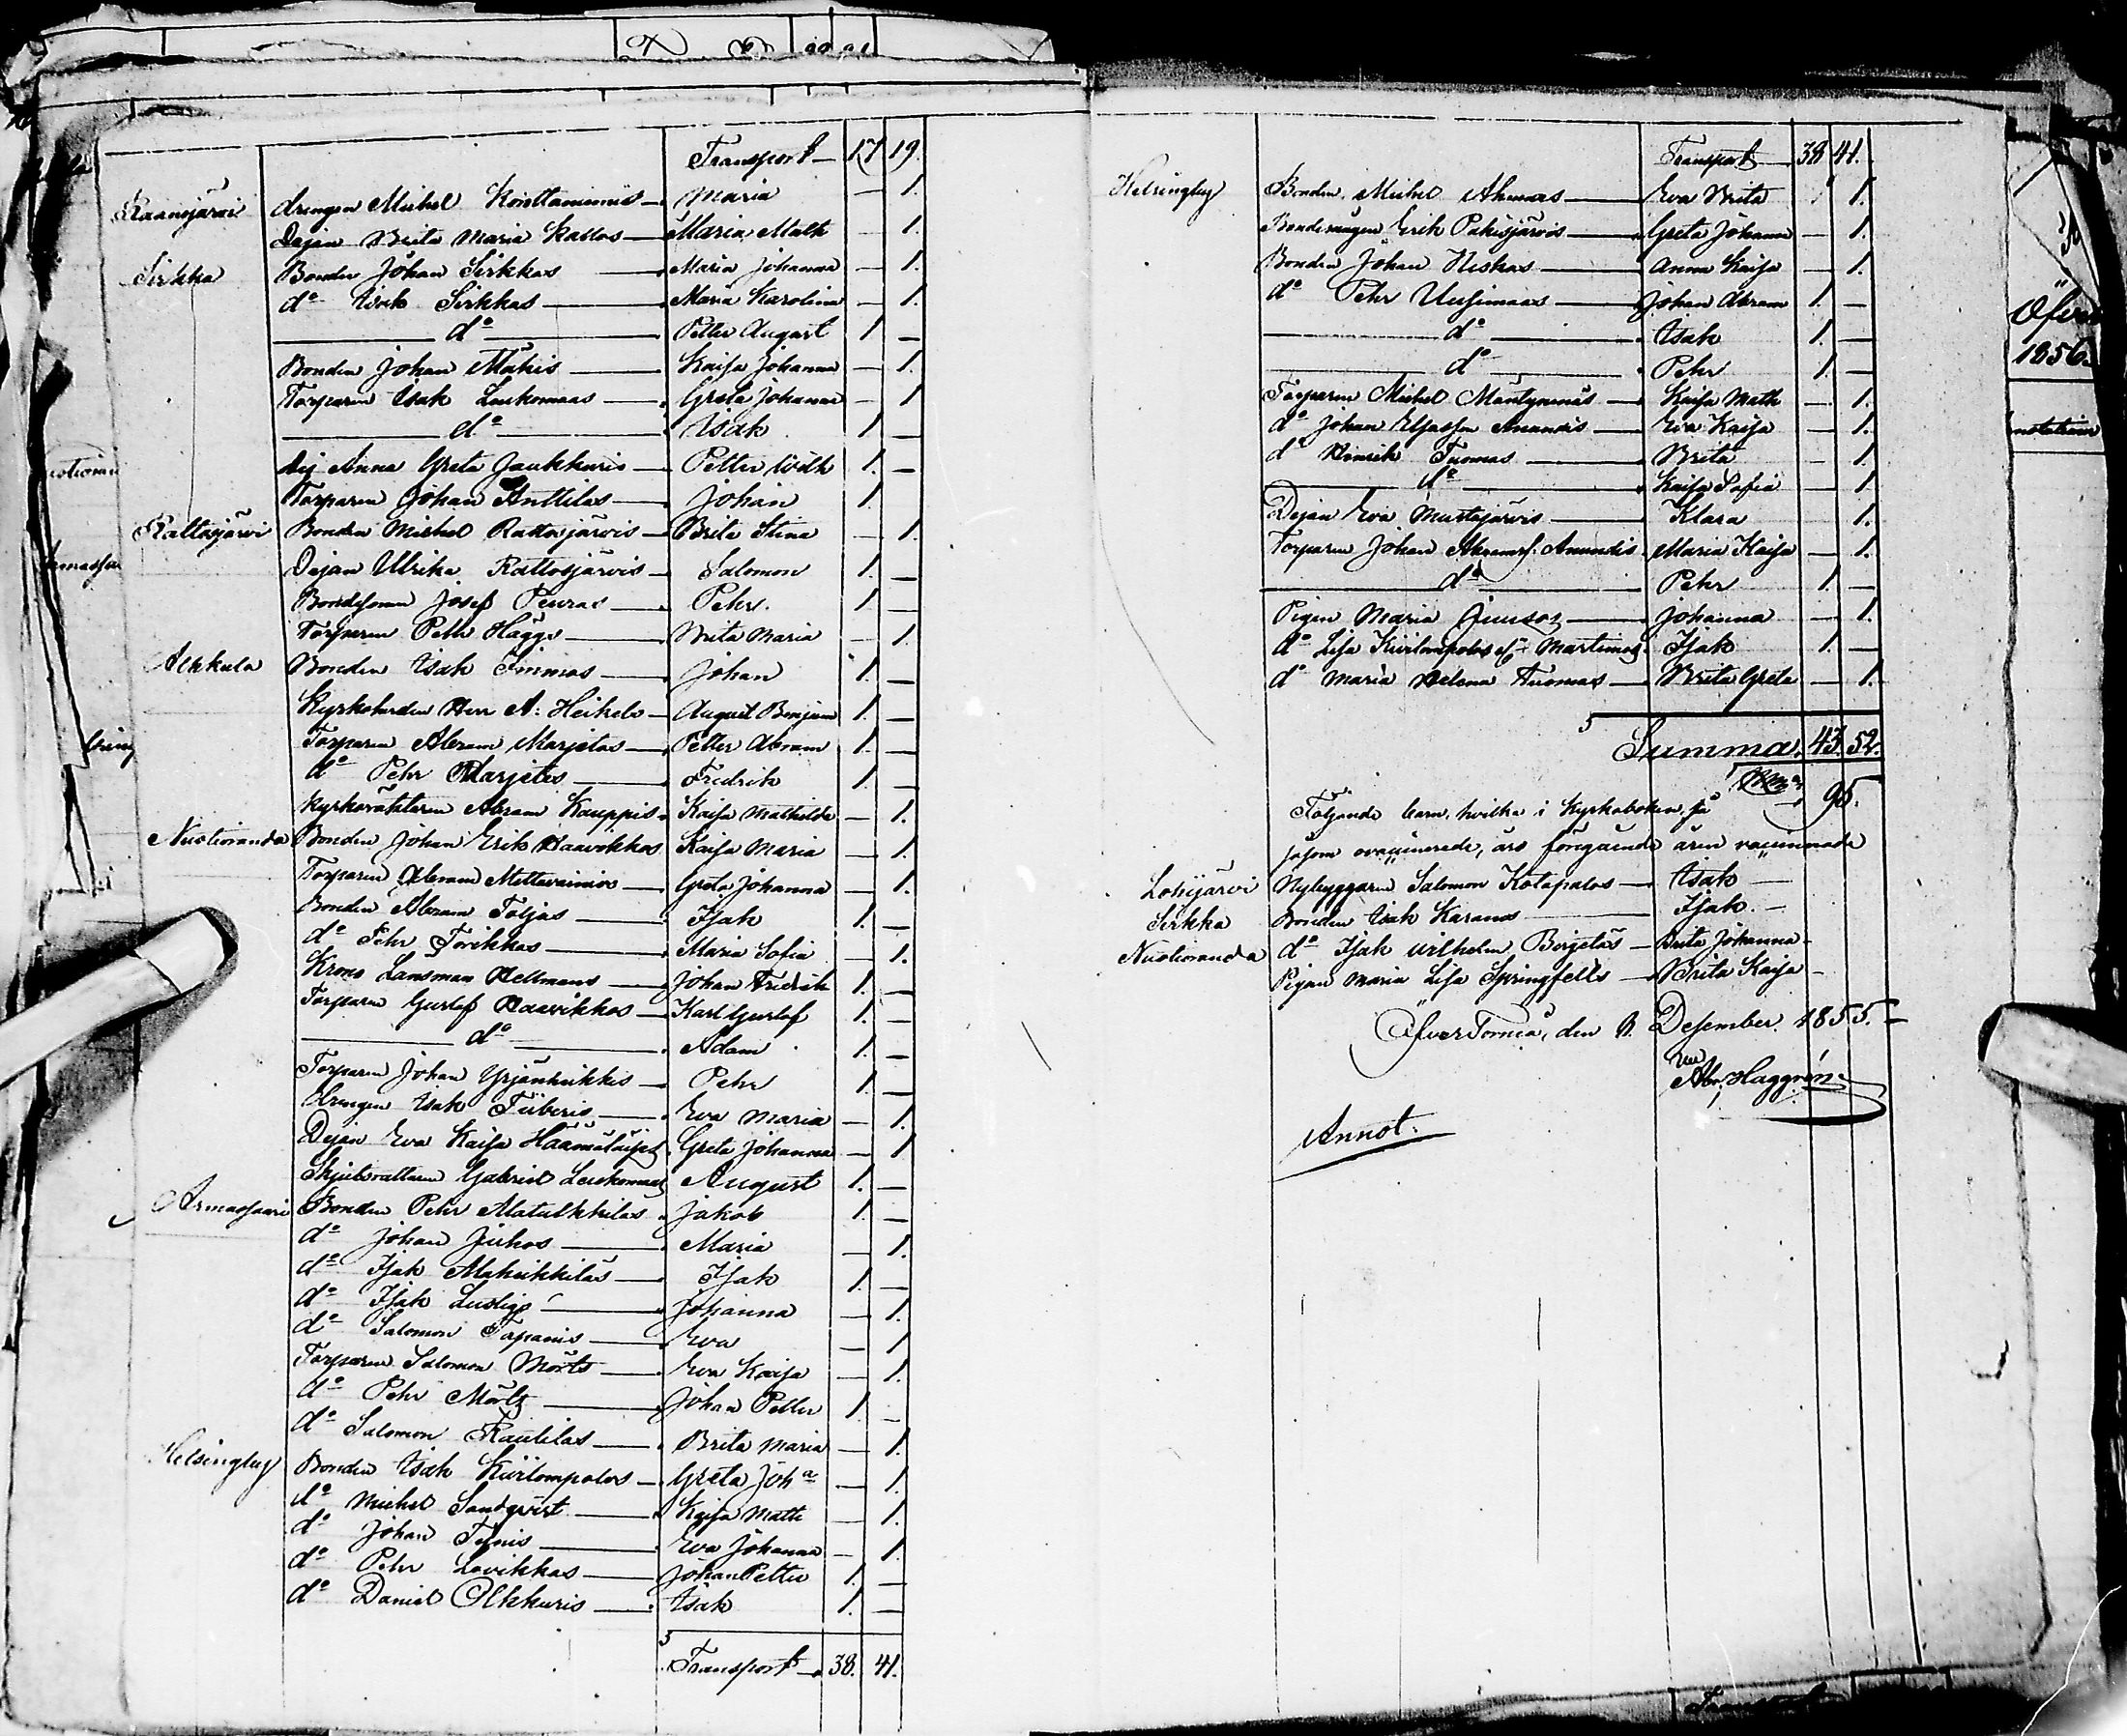 Transport 17 19.
Raanujärvi drengen Michel Konttamiemis Maria — 1.
Dejan Brita Maria Kallos Maria Math — 1.
Sirkka Bonden Johan Sirkkas Maria Johanna — 1.
do Isak Sirkkas Maria Karolina — 1.
do Petter August 1 —
Bonden Johan Mäkis Kaisa Johanna — 1.
Torparen Isak Laukomaas Greta Johanna — 1
do Isak 1 —
Anna Greta Jaukkuris Petter 1. —
Torparen Johan Anttilas Johan 1.
Rattosjärvi Bonden Michel Rattosjärvis Brita Stina — 1.
Dejan Ulrika Rattosjärvis Salomon 1. —
Bondesonen Josef Peuras Pehr. 1 —
Torparen Petter Häggs Brita Maria — 1.
Alkkula Bonden Isak Simmas Johan 1. —
Kyrkoherden Herr A. Heikels August Benjam 1. —
Torparen Abram Marjetas Petter Abram 1. —
do Pehr Marjetas Fredrik 1. —
Kyrkoväktaren Abram Kauppis Kaisa Mathilda — 1.
Nuotioranda Bonden Johan Erik Haavikkos Kaisa Maria — 1.
Torparen Abram Mettavainios Greta Johanna — 1.
Bonden Abram Toljas Isak 1. —
do Pehr Törikkas Maria Sofia — 1.
Krono Länsman Hellmans Johan Fredrik 1. —
Torparen Gustaf Haavikkos Karl Gustaf 1. —
do Adam 1. —
Torparen Johan Yrjänheikkis Pehr 1 —
drengen Isak Fiiberis Eva Maria — 1.
Dejan Eva Kaisa Greta Johanna — 1
Skjutsrättaren Gabriel August 1. —
Armassaari Bonden Pehr Alatulkkilas Jakob 1. —
do Johan Juhos Maria — 1.
do Isak Alaheikkiläs Isak 1. —
do Isak Lustigs Johanna — 1.
do Salomon Tapanis Eva — 1
Torparen Salomon Mörts Eva Kaisa — 1.
do Pehr Mörtz Johan Petter 1 —
do Salomon Rautilas Brita Maria — 1.
Helsingby Bonden Isak Kiirlompolos Greta Joha — 1.
do Michel Sandqvist Kaisa Math — 1.
do Johan Eva Johanna — 1.
do Pehr Lovikkas Johan Petter 1. —
do Daniel Olkkuris Isak 1. —
Transport 38. 41.
Transport 38 41.
Helsingby Bonden Michel Ahmas Eva Brita 1.
Bondemågen Erik Pakisjärvis Greta Johanna — 1.
Bonden Johan Niskas Anna Kaisa — 1.
do Pehr Uusimaas Johan Abram 1. —
do Isak 1. —
do Pehr 1. —
Torparen Michel Mäntyniemis Kaisa Math — 1.
do Johan Anundis Eva Kaisa — 1.
do Henrik Tuomas Brita — 1.
do Kaisa Sofia — 1.
Dejan Eva Mustajärvis Klara 1.
Torparen Johan Abramss. Anundis Maria Kaisa — 1.
do Pehr 1. —
Pigan Maria Johanna — 1.
do Lisa Kiirlompolos Martimos Isak 1. —
do Maria Helena Tuomas Brita Greta — 1.
Summa. 43. 52.
95.
Följande barn, hvilka i Kyrkoboken stå
såsom ovaccinerade, äro föregående åren vaccinnerade
Lohijärvi Nybyggaren Salomon Kotapalos Isak —
Sirkka Bonden Isak Karanas Isak. —
Nuotioranda do Isak Wilhelm Birjetas Brita Johanna —
Pigan Maria Lisa Springfelts Brita Kaisa —
ÖfverTorneå, den Desember 1855.
Abr. Häggrén.
Annot.
Öfver
1856.